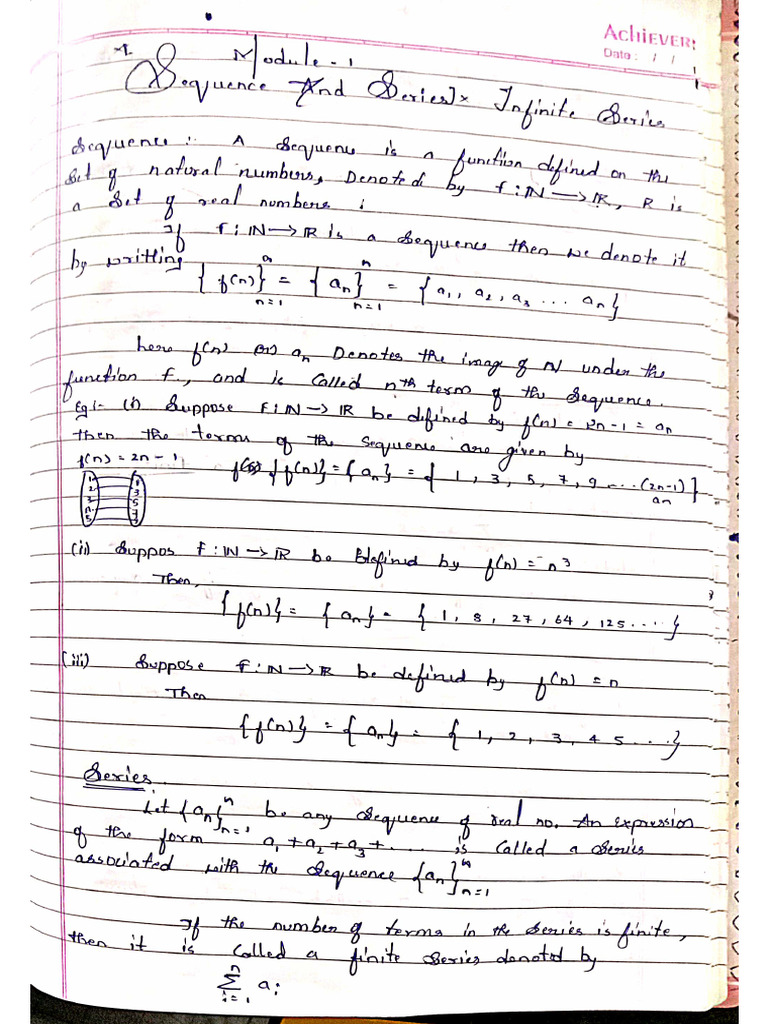 ACHIEVER
Date : / /
Module - 1
Sequence And Series Infinite Series
Sequence :- A Sequenc is a function defined on the
Set of natural numbers, Denoted by f : IN → IR, R is
a Set of real numbers :
If f : IN → IR is a Sequence then we denote it
by writting {f(n)}ₙ₌₁ⁿ = {aₙ}ₙ₌₁ⁿ = {a₁, a₂, a₃ ... aₙ}
here f(n) (or) aₙ Denotes the image of N under the
function f., and is Called nth term of the Sequence.
Eg:- (i) Suppose F : IN → IR be defined by f(n) = 2n-1 = aₙ
then the terms of the sequence are given by
f(n) = 2n - 1 {f(n)} = {aₙ} = {1, 3, 5, 7, 9 ... (2n-1)}
aₙ
(ii) Suppos f : IN → IR be defined by f(n) = n³
Then,
{f(n)} = {aₙ} = {1, 8, 27, 64, 125 ....}
(iii) Suppose f : IN → IR be defined by f(n) = n
Then
{f(n)} = {aₙ} = {1, 2, 3, 4 5 ...}
Series
Let {aₙ}ₙ₌₁ⁿ be any Sequence of real no. An expression
of the form a₁ + a₂ + a₃ + .... is Called a Series
associated with the Sequence {aₙ}ₙ₌₁ⁿ
If the number of terms in the Series is finite,
then it is Called a finite Series denoted by
∑ⁿᵢ₌₁ aᵢ